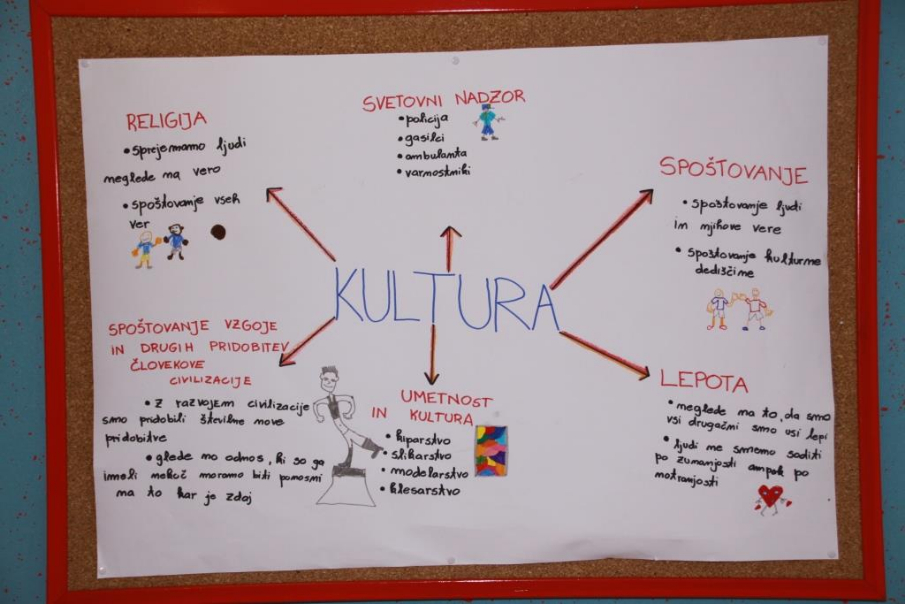 SVETOVNI NADZOR
• policija
• gasilci
• ambulanta
• varnostniki
RELIGIJA
• sprejemamo ljudi
neglede na vero
• spoštovanje vseh
ver
SPOŠTOVANJE
• spoštovanje ljudi
in njihove vere
• spoštovanje kulturne
dediščine
KULTURA
SPOŠTOVANJE VZGOJE
IN DRUGIH PRIDOBITEV
ČLOVEKOVE
CIVILIZACIJE
• Z razvojem civilizacije
smo pridobili številne nove
pridobitve
• glede na odnos, ki so ga
imeli nekoč moramo biti ponosni
na to kar je zdaj
UMETNOST
IN KULTURA
• kiparstvo
• slikarstvo
• modelarstvo
• klesarstvo
LEPOTA
• neglede na to, da smo
vsi drugačni smo vsi lepi
• ljudi ne smemo soditi
po zunanjosti ampak po
notranjosti